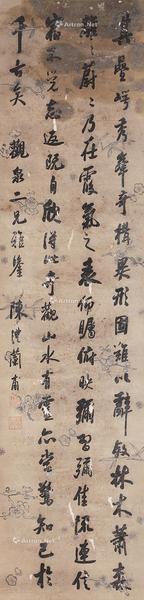 其疊崿秀峯奇構異形固難以辭敘林木蕭森
離々蔚々乃在霞氣之表仰矚俯映彌習彌佳流連信
宿不覺忘返既自欣得此奇觀山水有靈亦當驚知己於
千古矣 觀泉二兄雅鑒 陳澧蘭甫